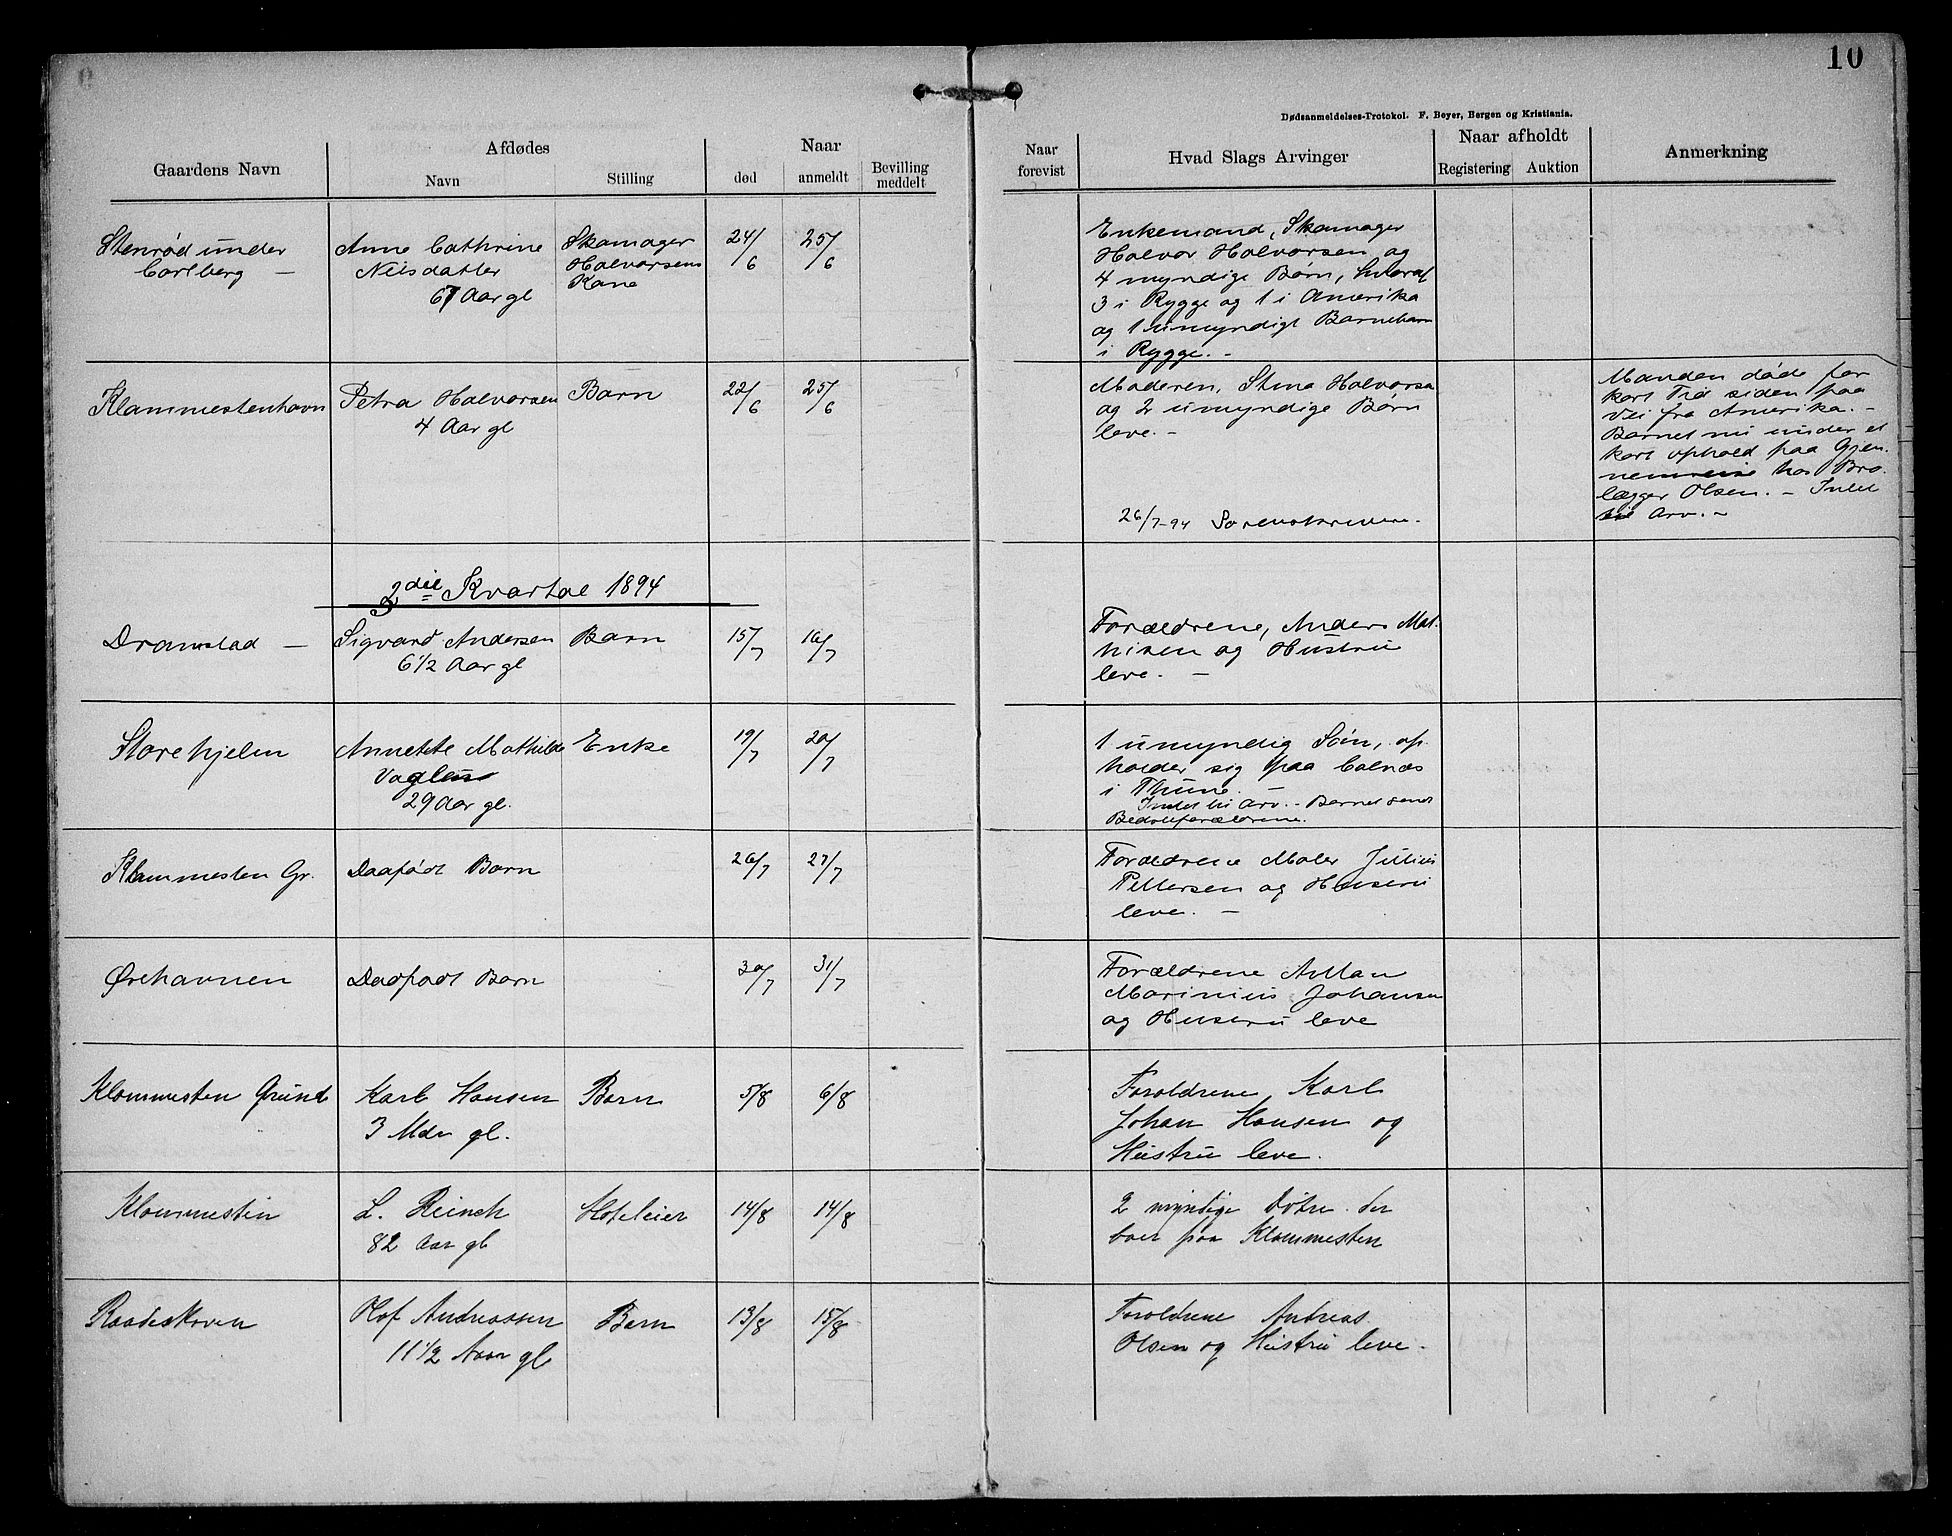 10
Dødsanmeldelses-Protokol. F. Beyer, Bergen og Kristiania.
Gaardens Navn
Afdødes
Navn
Stilling
Naar
død
anmeldt
Bevilling meddelt
Naar forevist
Hvad Slags Arvinger
Naar afholdt
Registering
Auktion
Anmerkning
Stenrød under
Carlberg —
Anne Cathrine
Nilsdatter
67 Aar gl
Skomager
Halvorsens
Kone
24/6
25/6
Enkemand, Skomager
Halvor Halvorsen og
4 myndige Børn, hvoraf
3 i Rygge og 1 i Amerika
og 1 umyndigt Barnebarn
i Rygge. -
Klommestenhavn
Petra Halvorsen
4 Aar gl
Barn
22/6
25/6
Moderen, Stina Halvorsen
og 2 umyndige Børn
leve. -
26/7-94 Sorenskriveren.
Manden døde for
kort Tid siden paa
Vei fra Amerika. -
Barnet nu under et
kort ophold paa Gjen-
nemreise hos Bro-
lægger Olsen. - Intet
til Arv. -
3die Kvartal 1894
Dramstad —
Sigvard Andersen
6 1/2 Aar gl
Barn
15/7
16/7
Forældrene, Anders Mat-
hisen og Hustru
leve. -
Storehjelen
Annette Mathilde
29 Aar gl.
Enke
19/7
20/7
1 umyndig Søn, op-
holder sig paa Calnæs
i Thune. -
Intet til Arv. - Barnet hos
Bedsteforældrene.
Klommesten Gr.
Daafødt Barn
26/7
27/7
Forældrene Maler Julius
Pettersen og Hustru
leve. -
Ørehavnen
Daafødt Barn
30/7
31/7
Forældrene Anton
Marinius Johansen
og Hustru leve
Klommesten Grund
Karl Hansen
3 Mdr gl.
Barn
5/8
6/8
Foreldrene Karl
Johan Hansen og
Hustru leve.
Klommesten
L. Reinch
82 Aar gl
Hoteleier
14/8
14/8
2 myndige Døtre der
boer paa Klommesten
Raadeskoven
Olof Andreassen
11 1/2 Aar gl
Barn
13/8
15/8
Foreldrene Andreas
Olsen og Hustru leve.